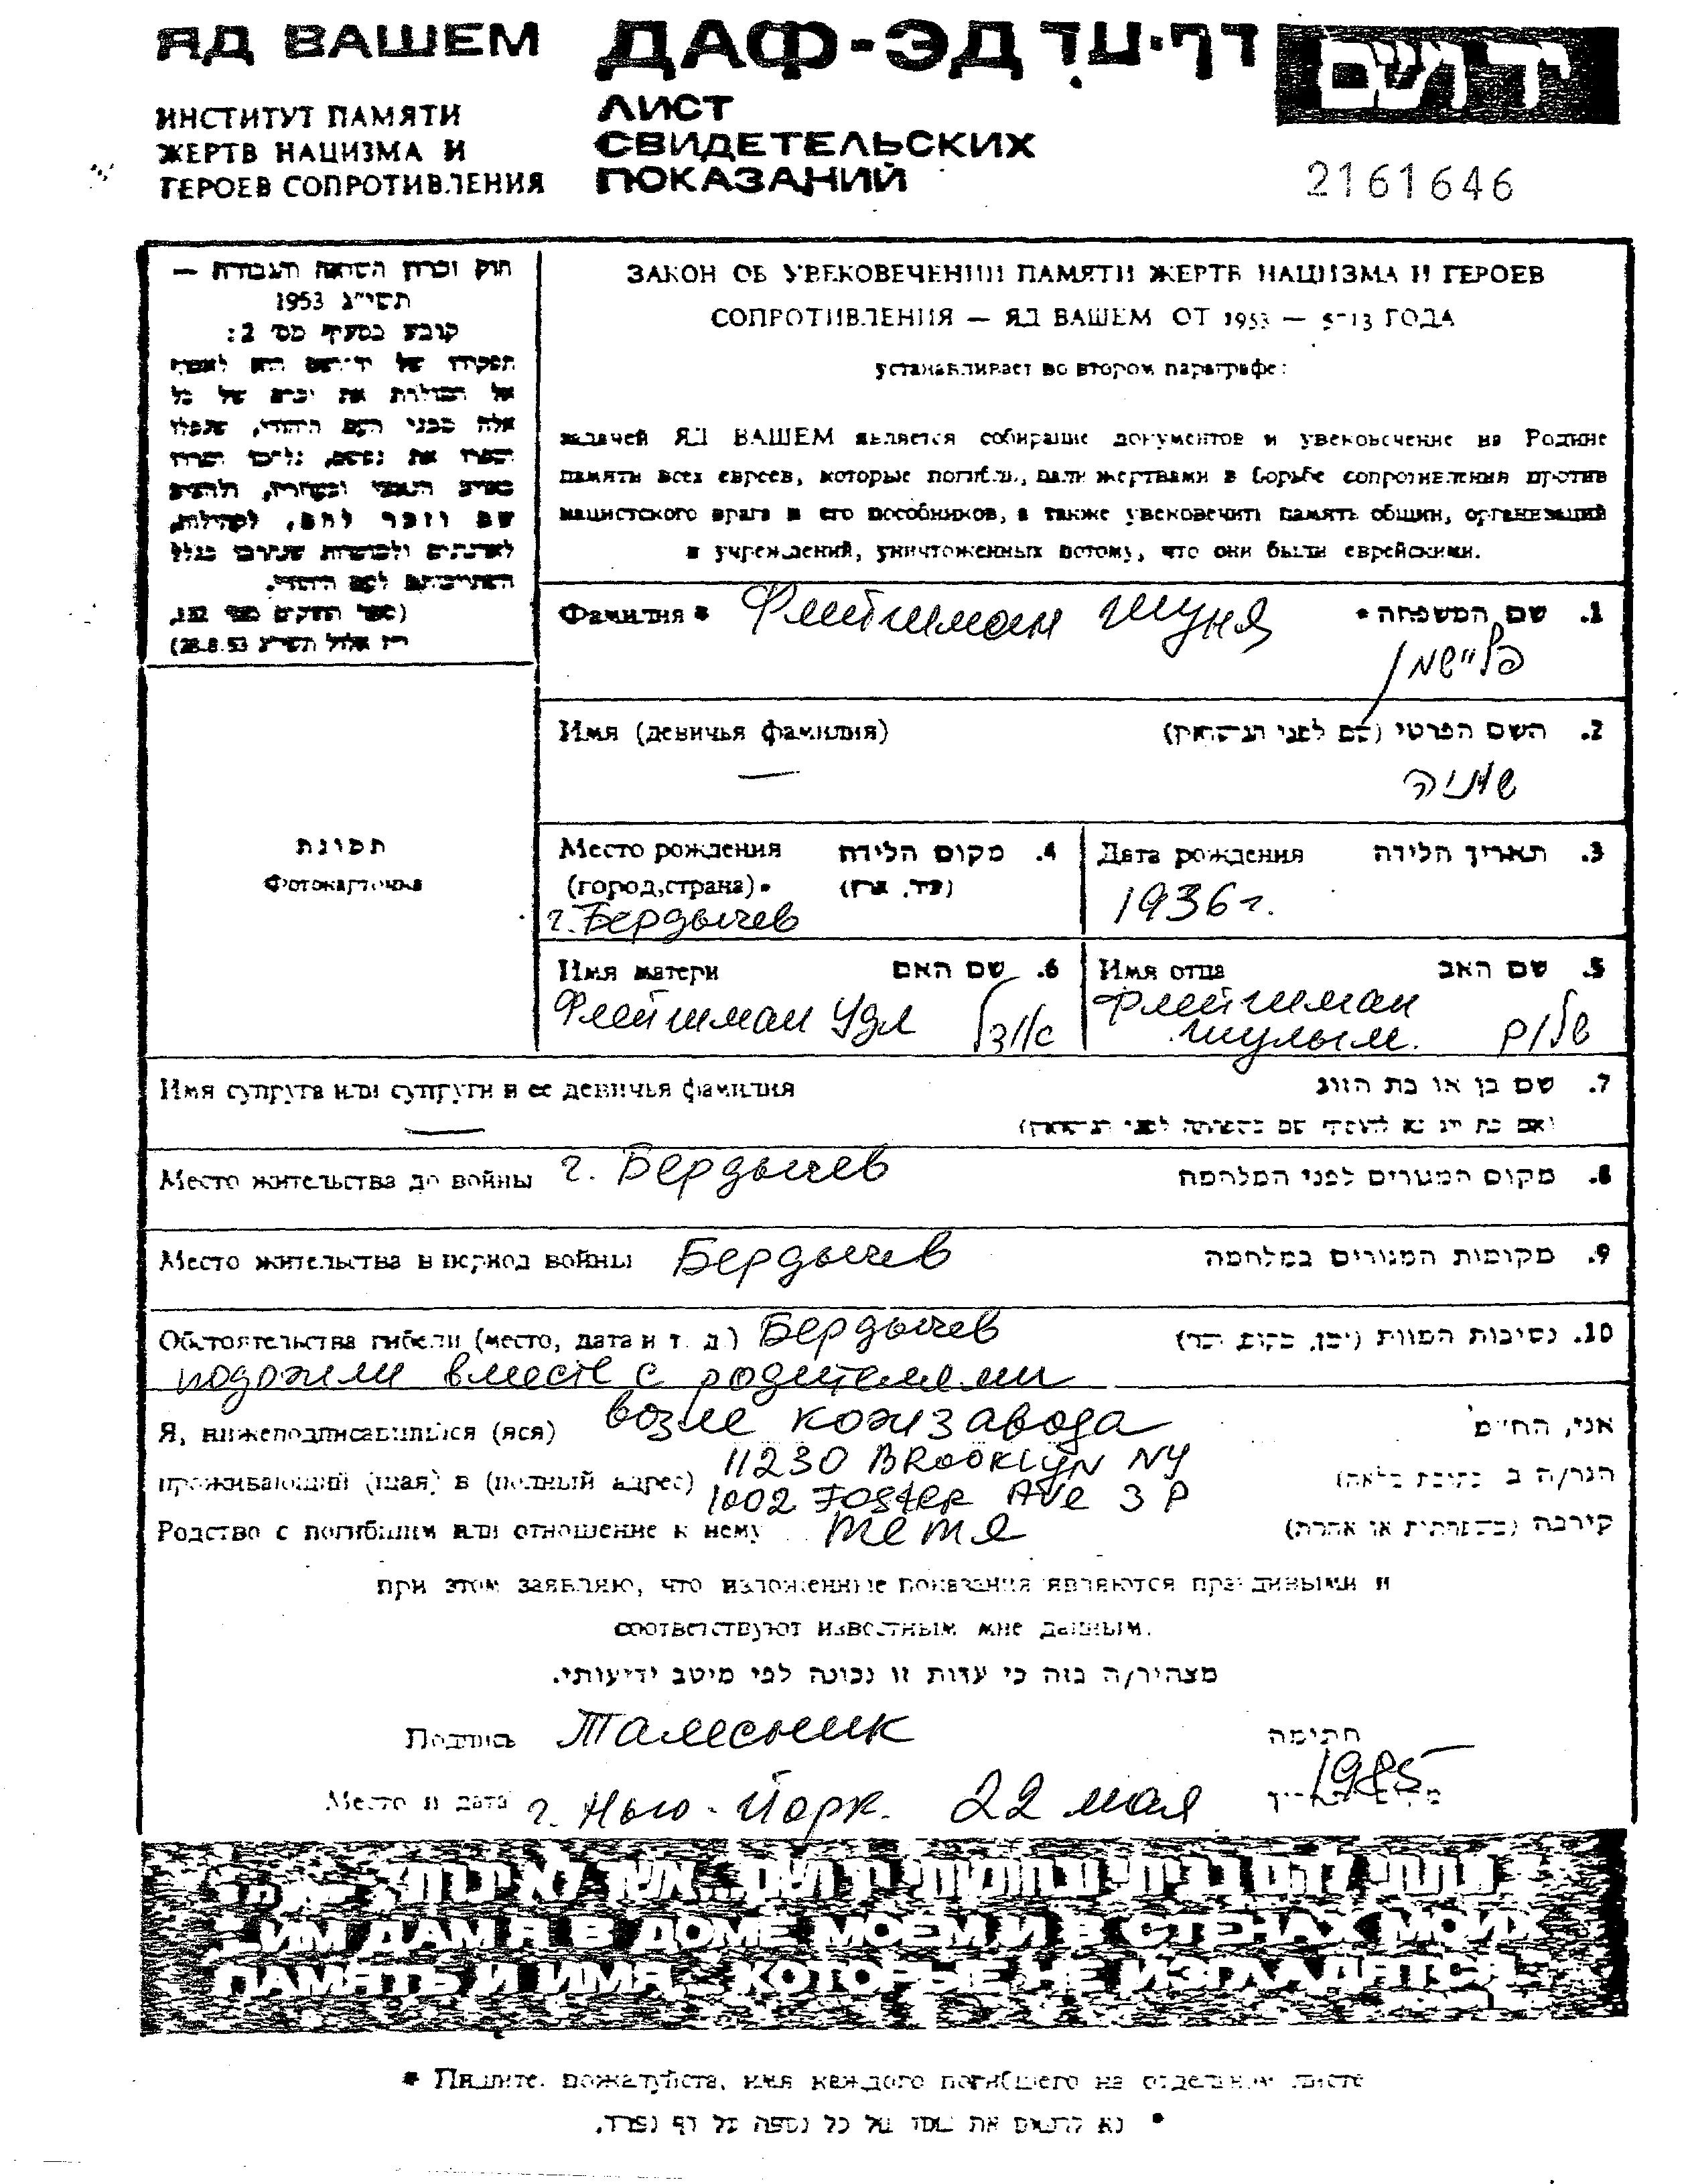 ЯД ВАШЕМ
ИНСТИТУТ ПАМЯТИ
ЖЕРТВ НАЦИЗМА И
ГЕРОЕВ СОПРОТИВЛЕНИЯ
ДАФ-ЭД דף-עד
ЛИСТ
СВИДЕТЕЛЬСКИХ
ПОКАЗАНИЙ
יד ושם
2161646
חוק זכרון השואה והגבורה —
תשי"ג 1953
קובע בסעיף מס' 2:
תפקידו של יד-ושם הוא לאסוף
אל המולדת את זכרם של כל
אלה מבני העם היהודי, שנפלו
ומסרו את נפשם, נלחמו ומרדו
באויב הנאצי ובעוזריו, ולהציב
שם וזכר להם, לקהילות,
לארגונים ולמוסדות שנחרבו בגלל
השתייכותם לעם היהודי.
(ספר החוקים מס' 132,
י"ז אלול תשי"ג 28.8.53)
ЗАКОН ОБ УВЕКОВЕЧЕНИИ ПАМЯТИ ЖЕРТВ НАЦИЗМА И ГЕРОЕВ
СОПРОТИВЛЕНИЯ — ЯД ВАШЕМ ОТ 1953 — 5713 ГОДА
устанавливает во втором параграфе:
задачей ЯД ВАШЕМ является собирание документов и увековечение на Родине
памяти всех евреев, которые погибли, пали жертвами в борьбе сопротивления против
нацистского врага и его пособников, а также увековечить память общин, организаций
и учреждений, уничтоженных потому, что они были еврейскими.
Фамилия * Флейшман Шуня 1. שם המשפחה *
פליישמן
Имя (девичья фамилия) 2. השם הפרטי (שם לפני הנישואין)
— שוניה
תמונת
Фотокарточка
Место рождения 4. מקום הלידה
(город,страна)* (עיר, ארץ)
г. Бердычев
Дата рождения 3. תאריך הלידה
1936 г.
Имя матери 6. שם האם
Флейшман Удл אודל
Имя отца 5. שם האב
Флейшман
Шулым. שלום
Имя супруга или супруги и ее девичья фамилия 7. שם בן או בת הזוג
—
Место жительства до войны г. Бердычев 8. מקום המגורים לפני המלחמה
Место жительства в период войны Бердычев 9. מקומות המגורים במלחמה
Обстоятельства гибели (место, дата и т. д.) Бердычев 10. נסיבות המוות (זמן, מקום, וכו')
вместе с родителями
возле кожзавода
Я, нижеподписавшийся (аяся) אני, החי"מ
11230 BROOKLYN NY
проживающий (щая) в (полный адрес) 1002 FOSTER AVE 3 P הגר/ה ב (כתובת מלאה)
Родство с погибшим или отношение к нему тетя קירבה (משפחתית או אחרת)
при этом заявляю, что изложенные показания являются правдивыми и
соответствуют известным мне данным.
מצהיר/ה בזה כי עדות זו נכונה לפי מיטב ידיעותי.
Подпись חתימה
Место и дата г. Нью-Йорк. 22 мая 1985
ИМ ДАМ Я В ДОМЕ МОЕМ И В СТЕНАХ МОИХ
ПАМЯТЬ И ИМЯ, КОТОРЫЕ НЕ ИЗГЛАДЯТСЯ
* Пишите, пожалуйста, имя каждого погибшего на отдельном листе
* נא לרשום את שמו של כל נספה על דף נפרד.